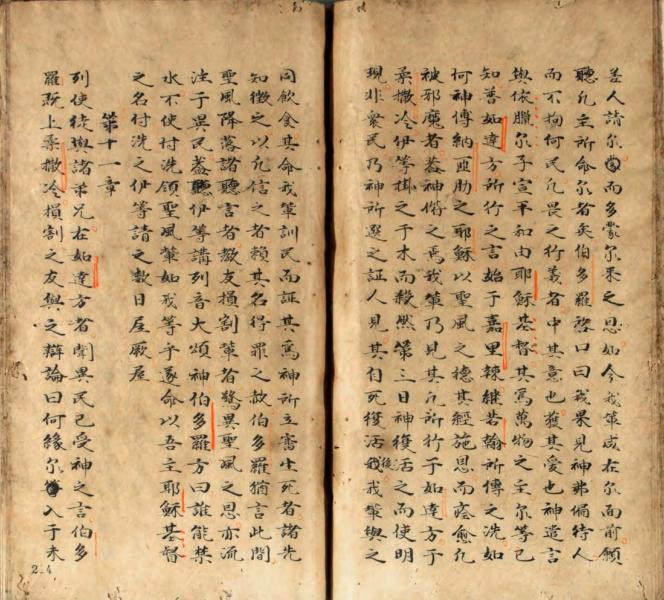 差人請尔而多蒙尔来之恩如今我輩咸在尔面前願
聽凢主所命尔者矣伯多羅啓口曰我果見神弗偏待人
而不拘何民凢畏之行義者中其意也獲其愛也神遣言
與依臘尔子宣平和由耶穌基督其爲萬物之主尔等已
知善如達方所行之言始于嘉里辣継若翰所傳之洗如
何神傅納匝肋之耶穌以聖風之德其經施恩而蔭愈凢
被邪魔者蓋神偕之焉我輩乃見其凢所行于如達方于
柔撒冷伊等掛之于木而殺然第三日神復活之而使明
現非衆民乃神所選之証人見其自死復活後我輩與之
同飲食其命我輩訓民而証其爲神所立審生死者諸先
知徵之以凢信之者頼其名得罪之赦伯多羅猶言此間
聖風降落諸聽言者教友損割輩者驚異聖風之恩亦流
注于異民蓋聽伊等講列音大頌神伯多羅方曰誰能禁
水不使付洗領聖風輩如我等乎遂命以吾主耶穌基督
之名付洗之伊等請之数日屋厥屋
第十一章
列使徒與諸弟兄在如達方者聞異民已受神之言伯多
羅旣上柔撒冷損割之友與之辯論曰何縁尔入于未